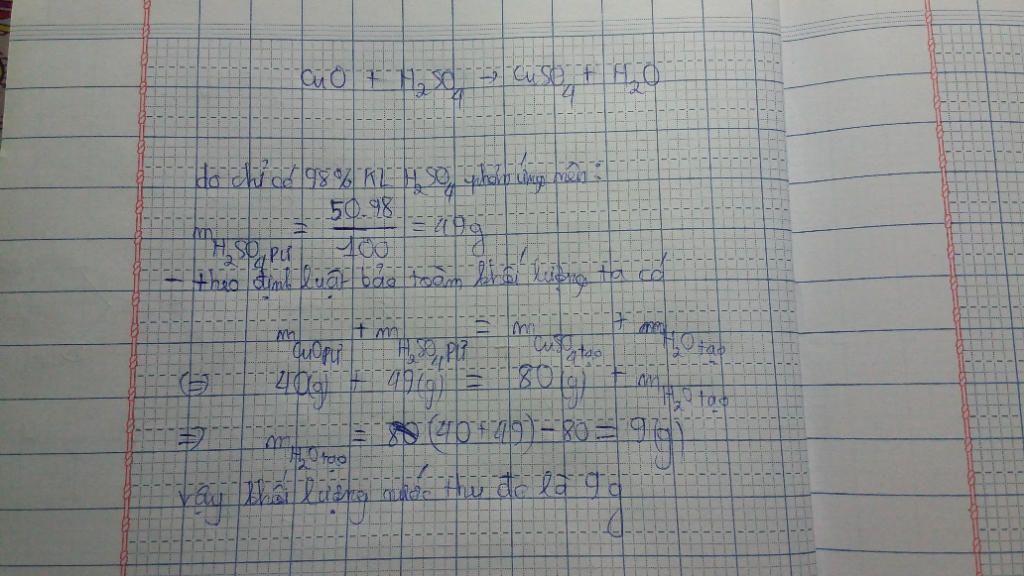 CuO + H₂SO₄ → CuSO₄ + H₂O
do chỉ có 98% KL H₂SO₄ phản ứng nên:
m H₂SO₄ pứ = 50.98 / 100 = 49g
- theo định luật bảo toàn khối lượng ta có
m CuO pứ + m H₂SO₄ pứ = m CuSO₄ tạo + m H₂O tạo
(=) 40(g) + 49(g) = 80(g) + m H₂O tạo
=> m H₂O tạo = (40+49) - 80 = 9(g)
vậy khối lượng nước thu đc là 9g